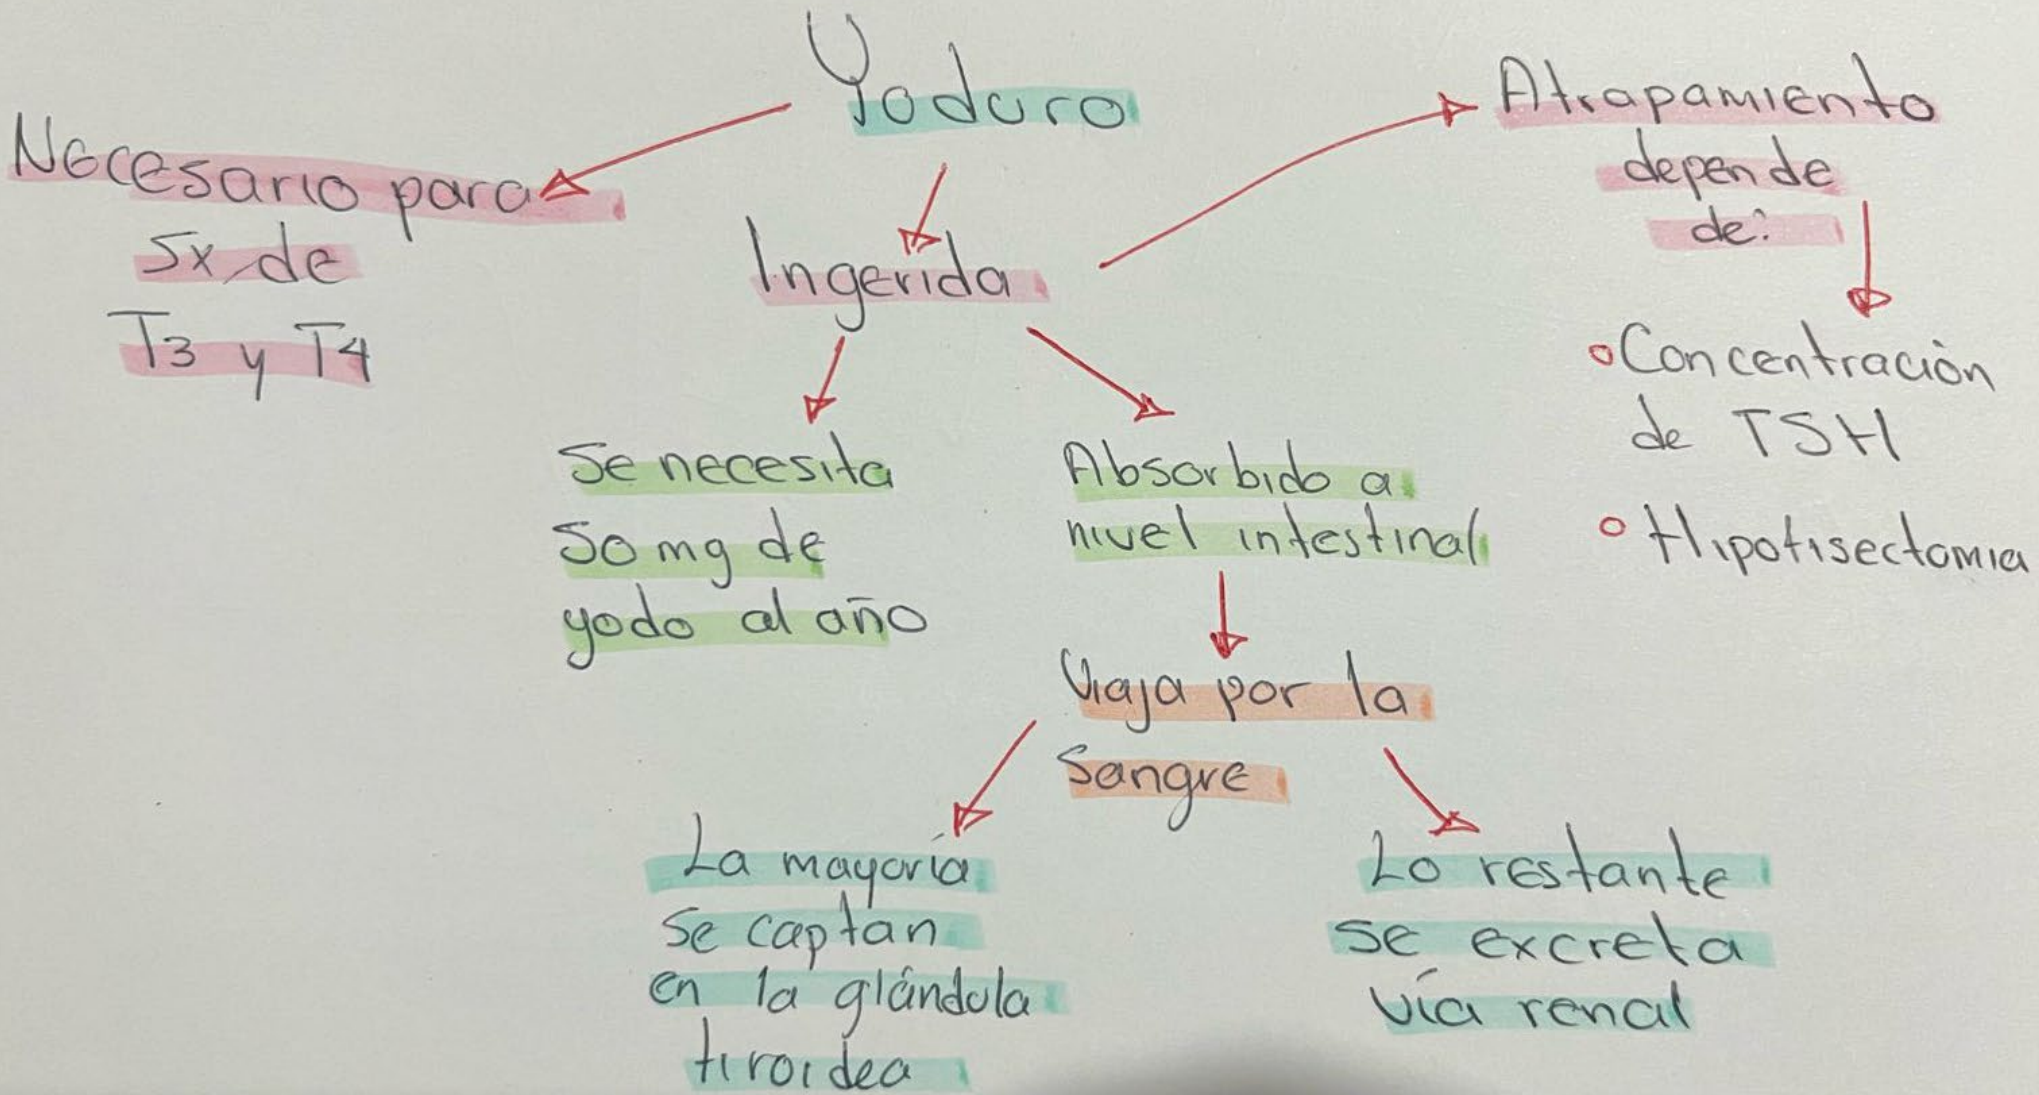 Yoduro
Necesario para
Sx de
T3 y T4
Ingerida
Atrapamiento
depende
de:
•Concentración
de TSH
• Hipofisectomia
Se necesita
50 mg de
yodo al año
Absorbido a
nivel intestinal
Viaja por la
Sangre
La mayoría
se captan
en la glándula
tiroidea
Lo restante
se excreta
vía renal